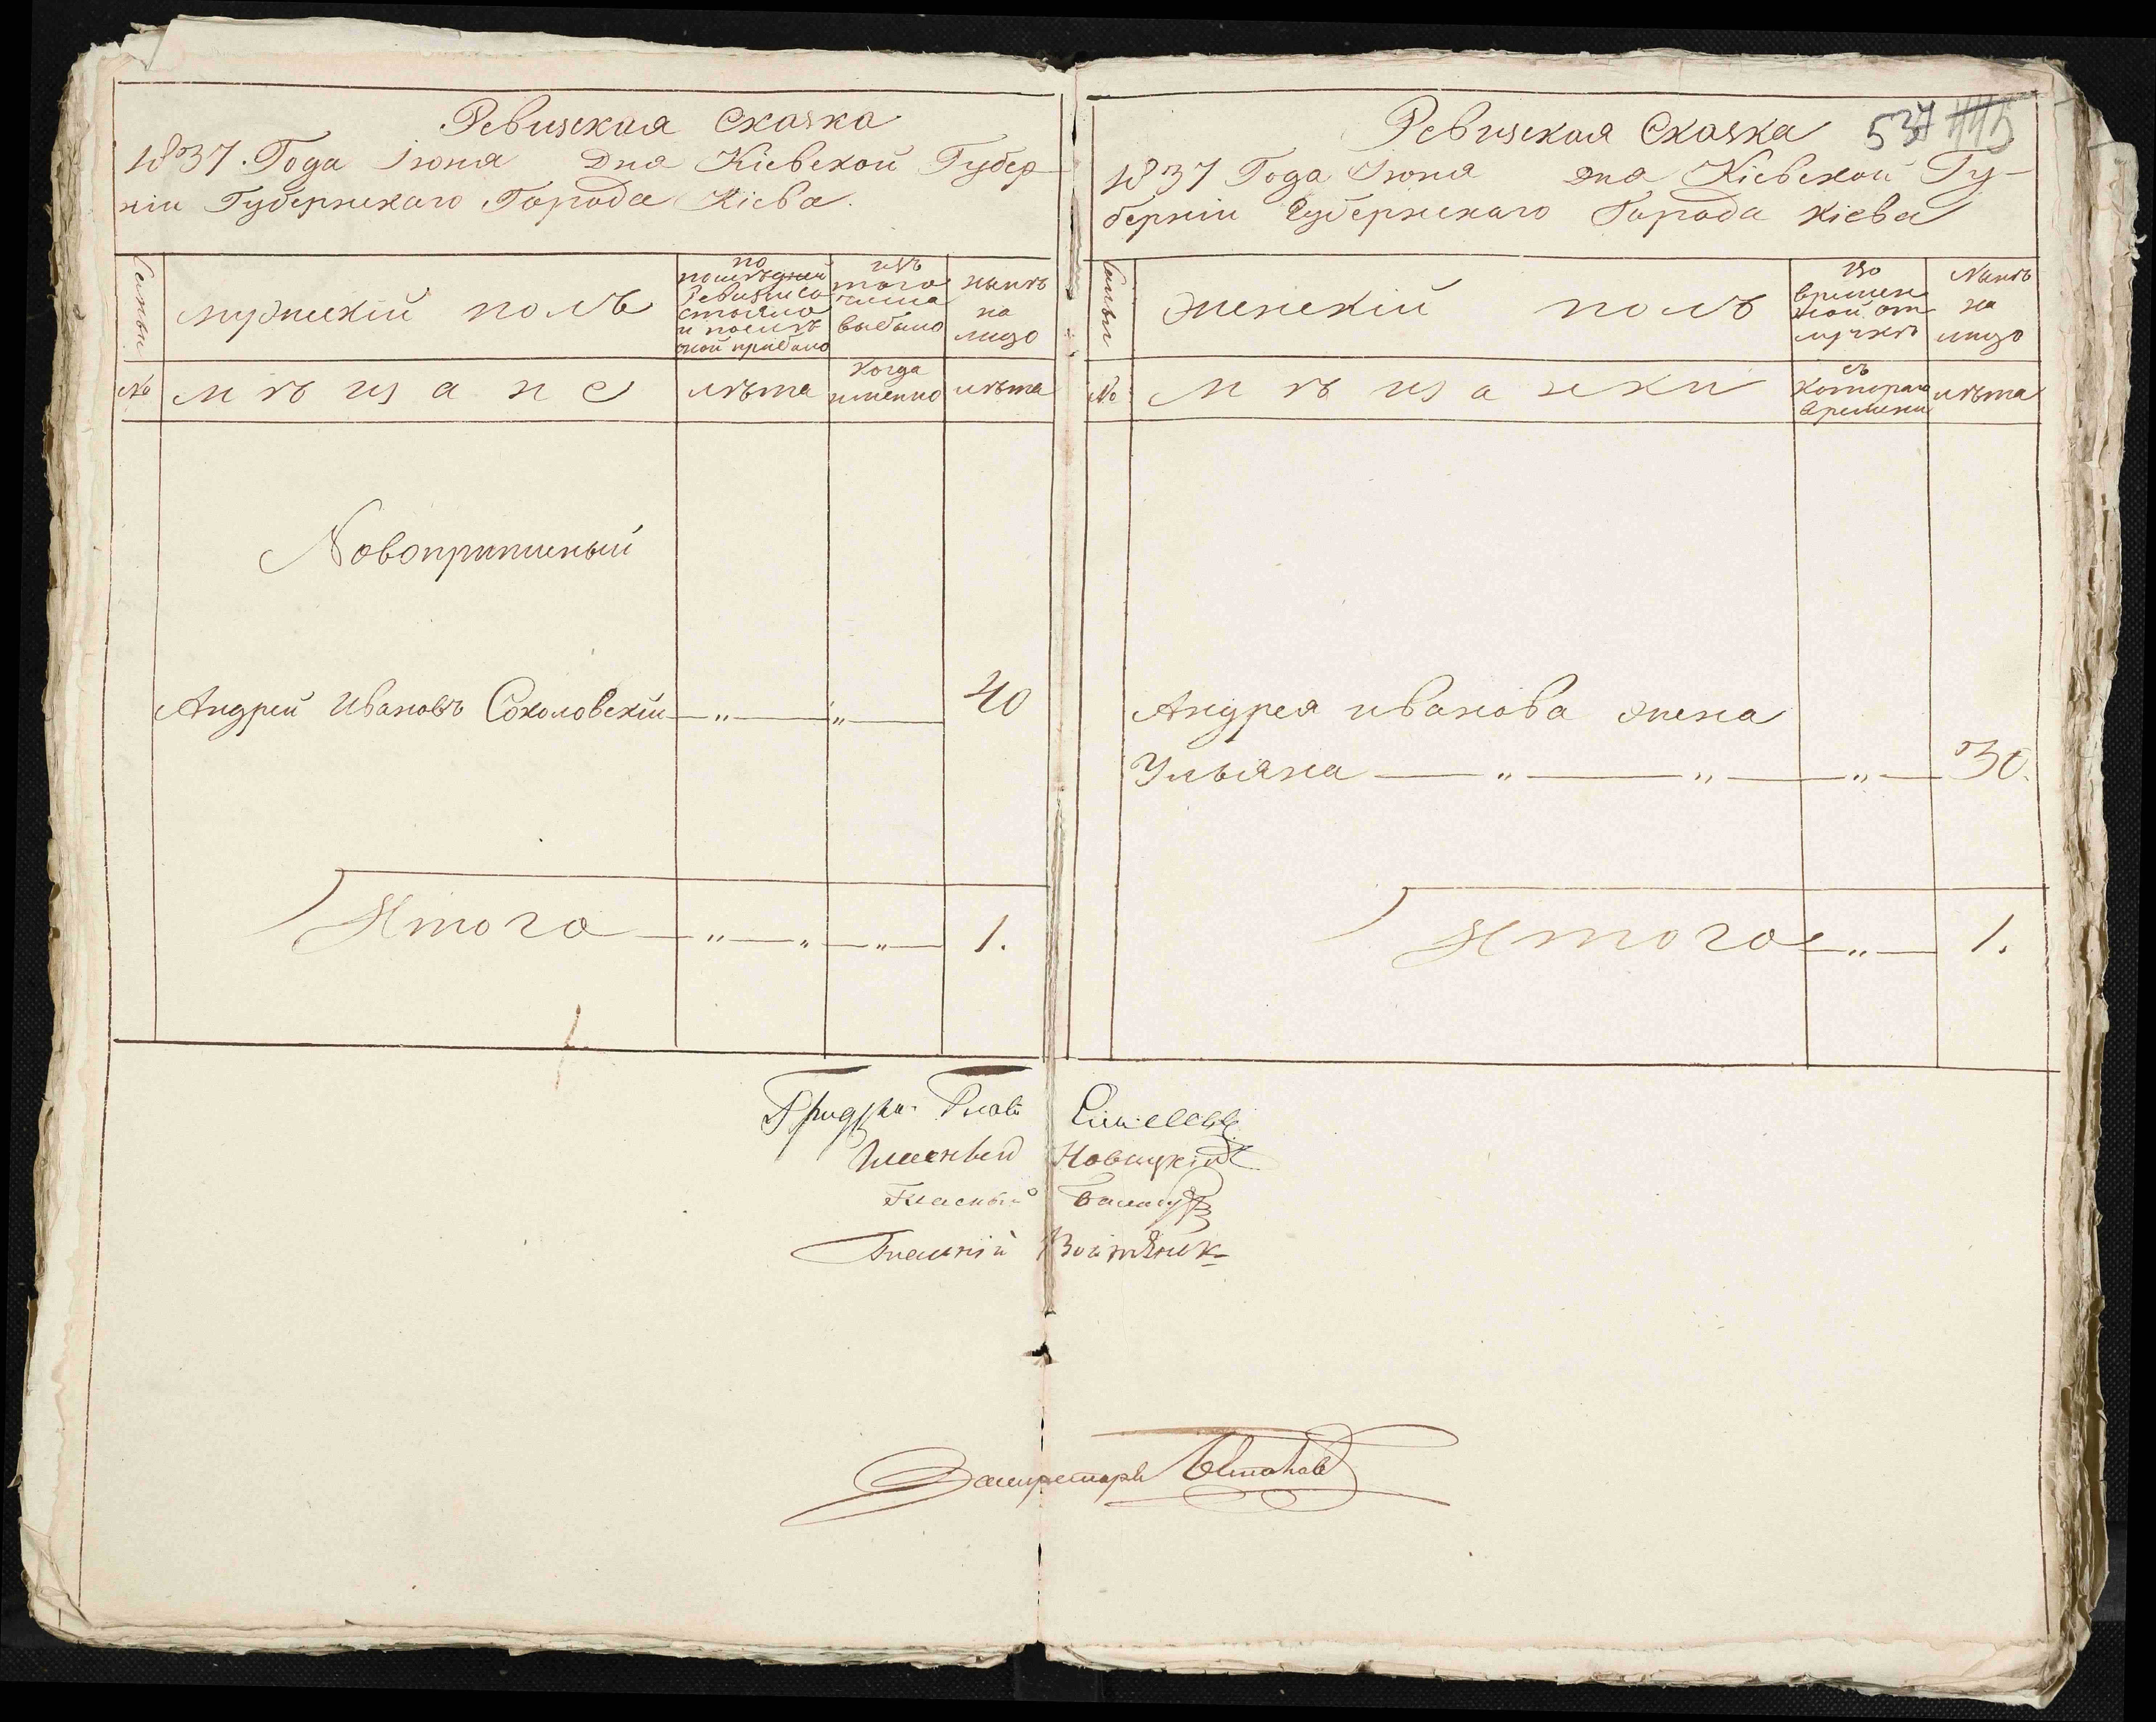 Ревизская Сказка
1837. Года Іюня Дня Кіевской Губер-
ніи Губернскаго Города Кіева.
Семьи
мужескій полъ
по
последней
Ревизіи со
стояло
и после
оной прибыло
изъ
того
числа
выбыло
нынѣ
на
лицо
№
мѣщане
лѣта
когда
именно
лѣта
Новоприписный
Андрей Ивановъ Соколовскій — „ — „ — 40
Итого — „ — „ — „ — 1.
Ревизская Сказка
537 445
1837 Года Іюня дня Кіевской Гу-
берніи Губернскаго Города Кіева
Семьи
женскій полъ
во
времен
ной от
лучкѣ
Нынѣ
на
лицо
№
мѣщанки
съ
котораго
времени
лѣта
Андрея Иванова жена
Ульяна — „ — „ — „ — 30.
Итого — „ — 1.
Гласный Новицкій
Гласный
Гласній Войтенк
Секретарь